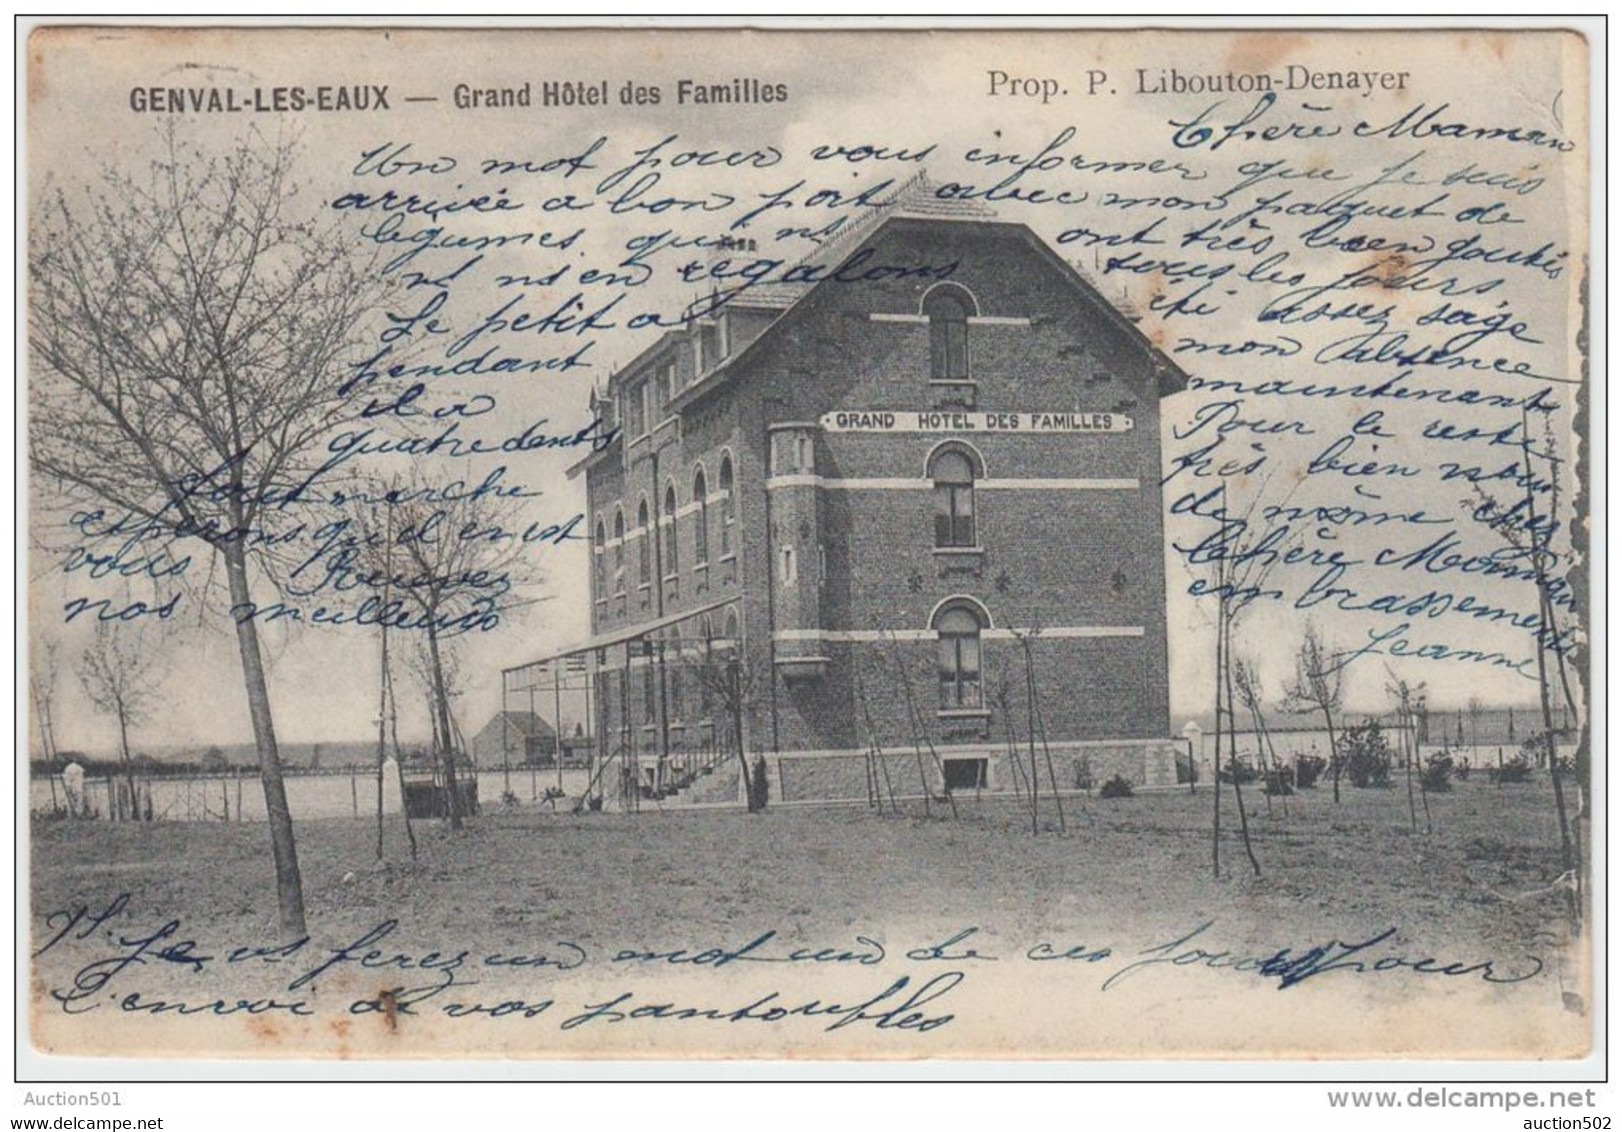 GENVAL-LES-EAUX — Grand Hôtel des Familles
Prop. P. Libouton-Denayer
Chère Maman
Un mot pour vous informer que je suis
arrivée a bon port avec mon paquet de
légumes qui ns ont très bien goutés
ns ns en regalons tous les jours
Le petit a été assez sage
pendant mon absence
il a maintenant
quatre dents Pour le reste
tout marche très bien nous
esperons qu'il en est de même chez
vous Recevez Chère Maman
nos meilleurs embrassements
Jeanne
GRAND HÔTEL DES FAMILLES
PS. Je vs ferez un mot un de ces jours pour
l'envoi de vos pantoufles
Auction501
www.delcampe.net
auction502
auction502